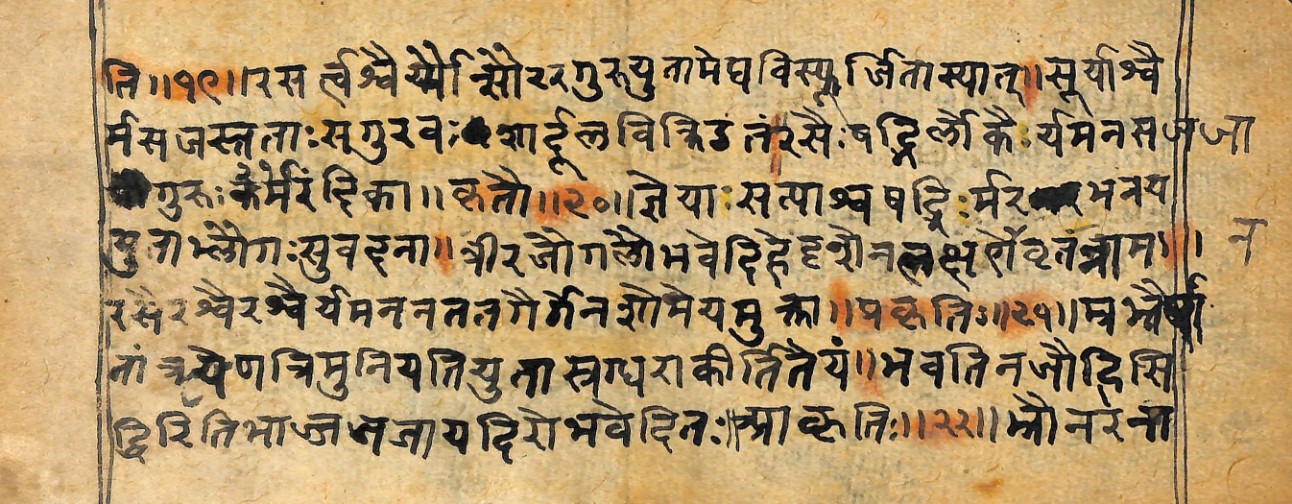 ति॥१९॥रसर्त्वश्वैर्य्मौन्सौररगुरुयुतामेघविस्फूर्जितास्यात्॥सूर्याश्वै
र्मसजस्ततताःसगुरवःशार्दूलविक्रिडतंरसैःषद्भिर्लोकैःर्यमनसजजा
गुरुःकर्मरंद्दिका॥कृतौ॥२०॥ज्ञेयाःसत्पाश्वषद्भिःर्मरभनय
युताभ्लौगःसुवदना॥त्रीरजौगलौभवेदिहेदृशैनलक्षणेनवृतंन्नाम॥
रसैरश्वैरश्वैर्यमनननततगैर्गेनशोभेयमुक्ता॥प्रकृतिः॥२१॥म्रभ्नैर्या
नांत्रयेणत्रिमुनियतियुतास्त्रग्धराकीर्तितेयं॥भवतिनजौद्दिसि
द्धिरितिभाज्जजजायदिरोभवेदितः॥आकृतिः॥२२॥म्भौनरना